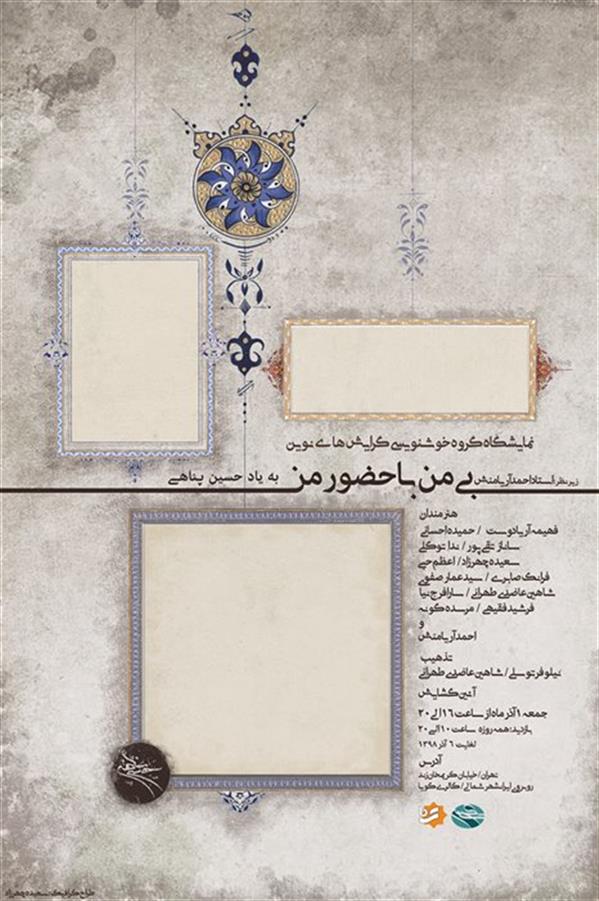 نمایشگاه گروه خوشنویسی گرایش های نوین
زیر نظر: استاد احمد آریامنش
بی من با حضور من
به یاد حسین پناهی
هنرمندان
فهیمه آریادوست / حمیده احسانی
ساناز تقی پور / ندا توکلی
سعیده چهرزاد / اعظم حبی
فرانک صابری / سید عمار صفوی
شاهین عاضدی طهرانی / سارا فرج نیا
فرشید فقیهی / مرسده کونه
و
احمد آریامنش
تذهیب
نیلوفر توسلی / شاهین عاضدی طهرانی
آئین گشایش
جمعه ۱ آذر ماه از ساعت ۱۶ الی ۲۰
بازدید: همه روزه ساعت ۱۰ الی ۲۰
لغایت ۶ آذر ۱۳۹۸
آدرس
تهران / خیابان کریمخان زند
روبروی ایرانشهر شمالی / گالری گویا
طراح گرافیک: سعیده چهرزاد